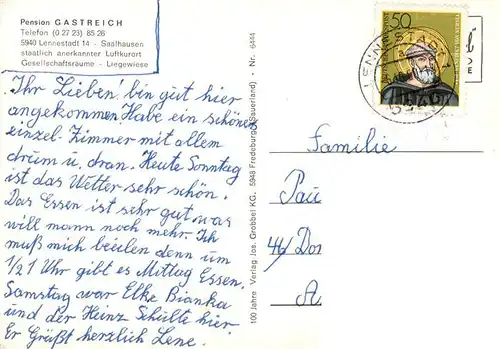 Pension GASTREICH
Telefon (0 27 23) 85 26
5940 Lennestadt 14 - Saalhausen
staatlich anerkannter Luftkurort
Gesellschaftsräume - Liegewiese
Ihr Lieben! bin gut hier
angekommen Habe ein schönes
einzel-Zimmer mit allem
drum u. dran. Heute Sonntag
ist das Wetter sehr schön.
Das Essen ist sehr gut was
will mann noch mehr. Ich
muß mich beeilen denn um
1/21 Uhr gibt es Mittag Essen,
Samstag war Elke Bianka
und der Heinz Schulte hier.
Er Grüßt herzlich Lene.
100 Jahre Verlag Jos. Grobbel KG, 5948 Fredeburg (Sauerland) · Nr. 6444
50
LENNESTADT
Familie
Pau
46 Dor
A